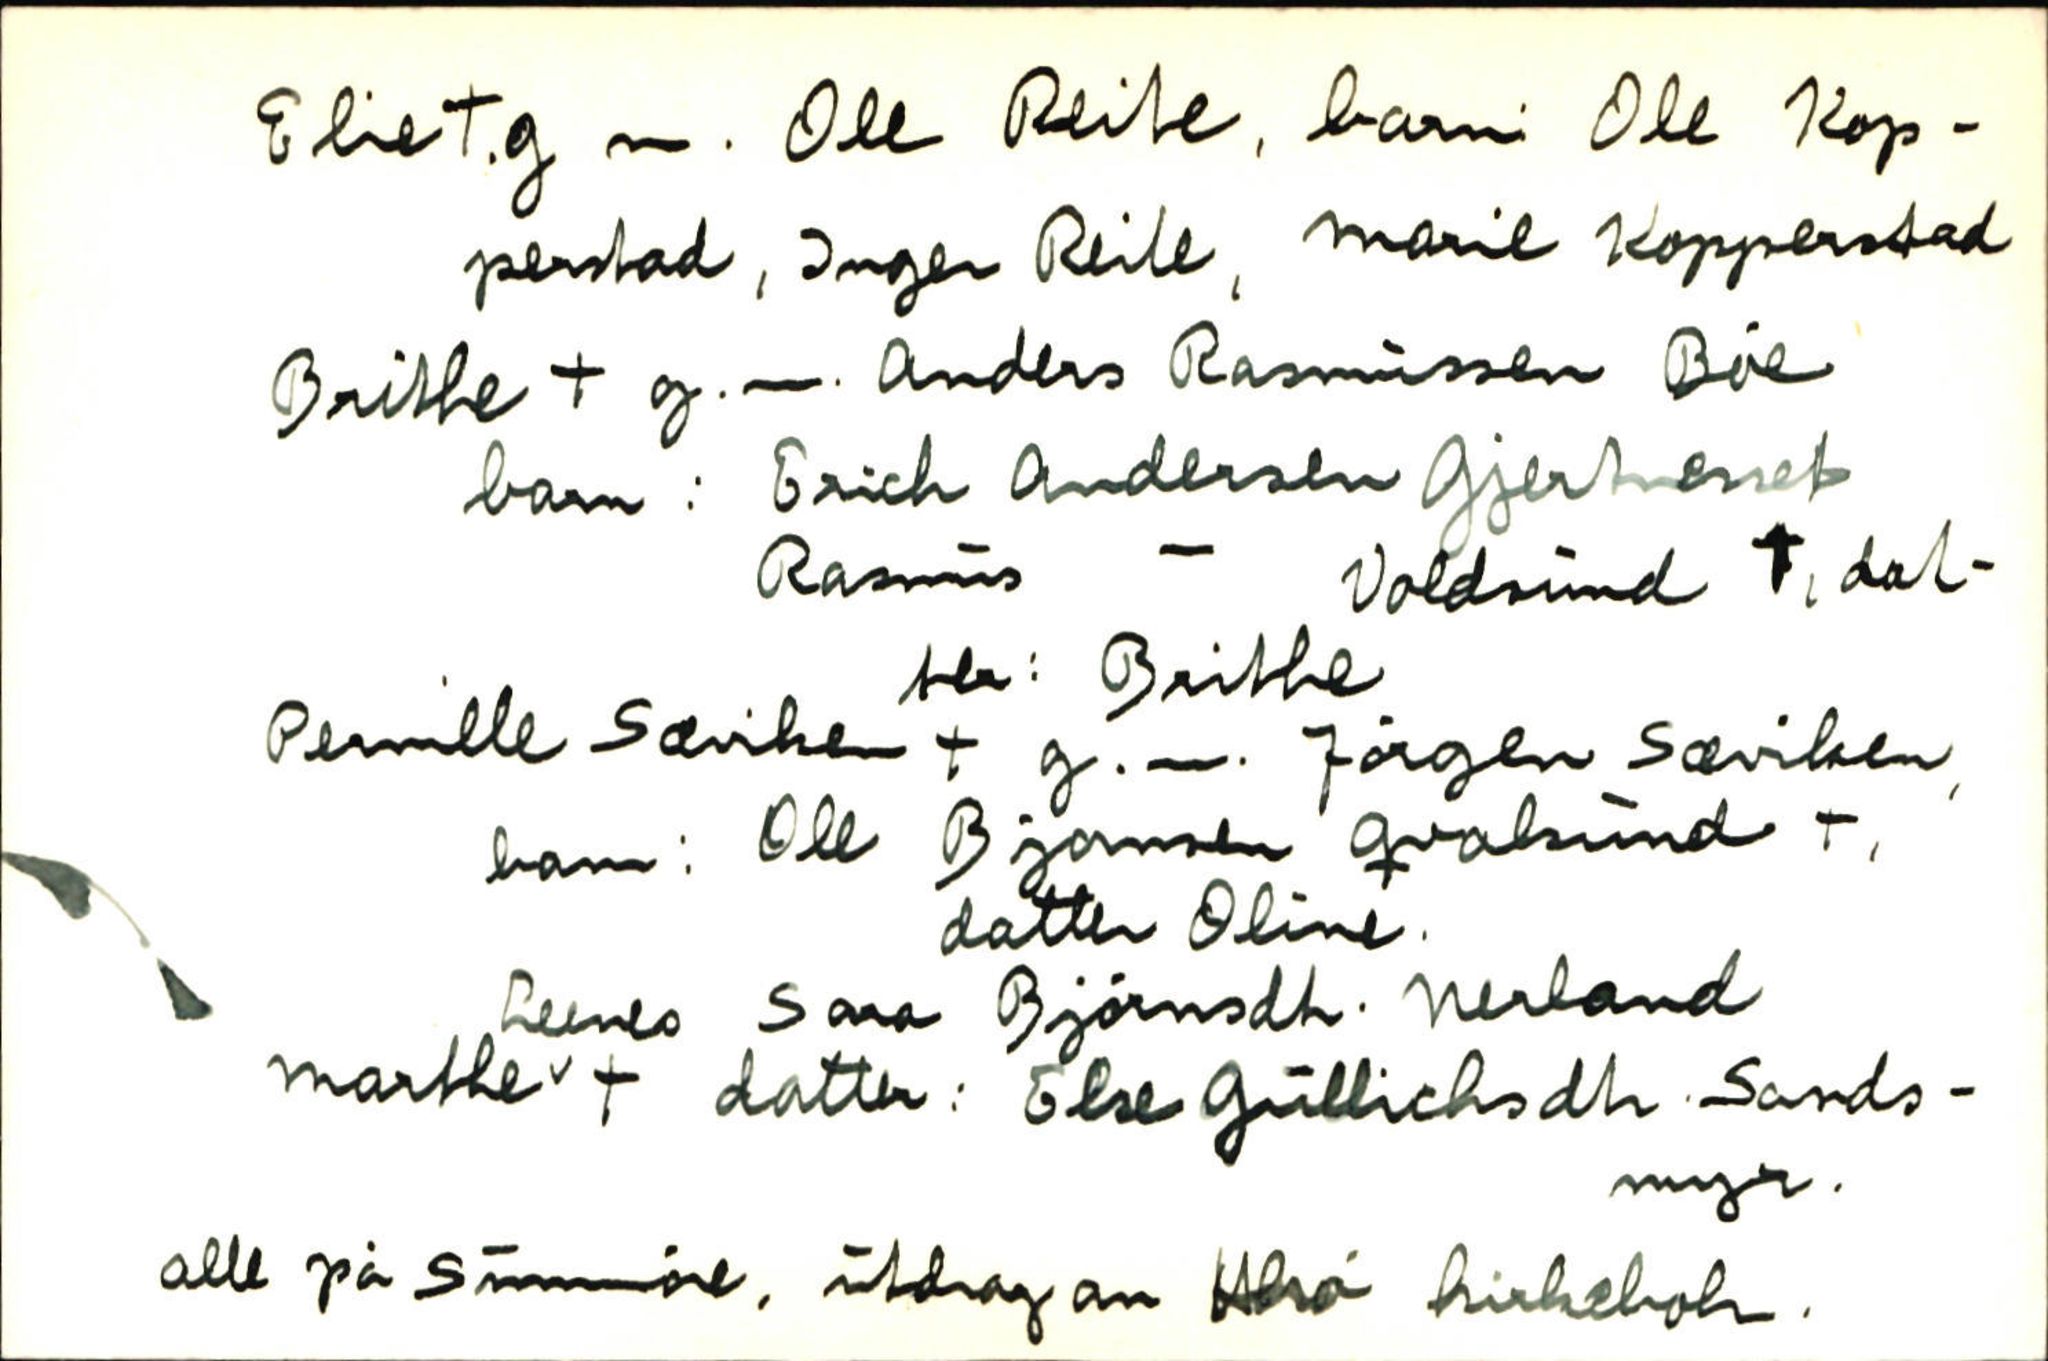 Elie †. g m. Ole Reite, barn: Ole Kop-
perstad, Inger Reite, Marie Kopperstad
Brithe + g. m. Anders Rasmussen Böe
barn: Erich Andersen Gjertnesset
Rasmus — Voldsund †, dat-
ter: Brithe
Pernille Sæviken + g. m. Jörgen Sæviken,
barn: Ole Bjørnsen Qvalsund +,
datter Oline.
Sara Björnsdtr. Nerland
Marthe + datter: Else Gullichsdtr. Sands-
myr.
alle på Sunmöre, utdrag av Herö kirkebok.